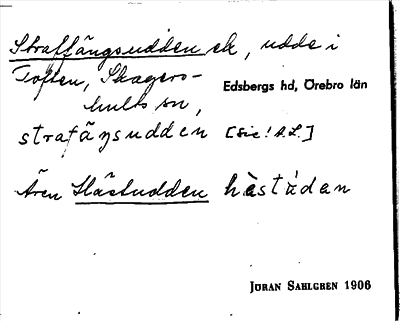 Straffångsudden ek, udde i
Toften, Skagers-
hults sn,
Edsbergs hd, Örebro län
strafåŋsudden [sic! J.S.]
Även Hästudden hästùdan
JÖRAN SAHLGREN 1906